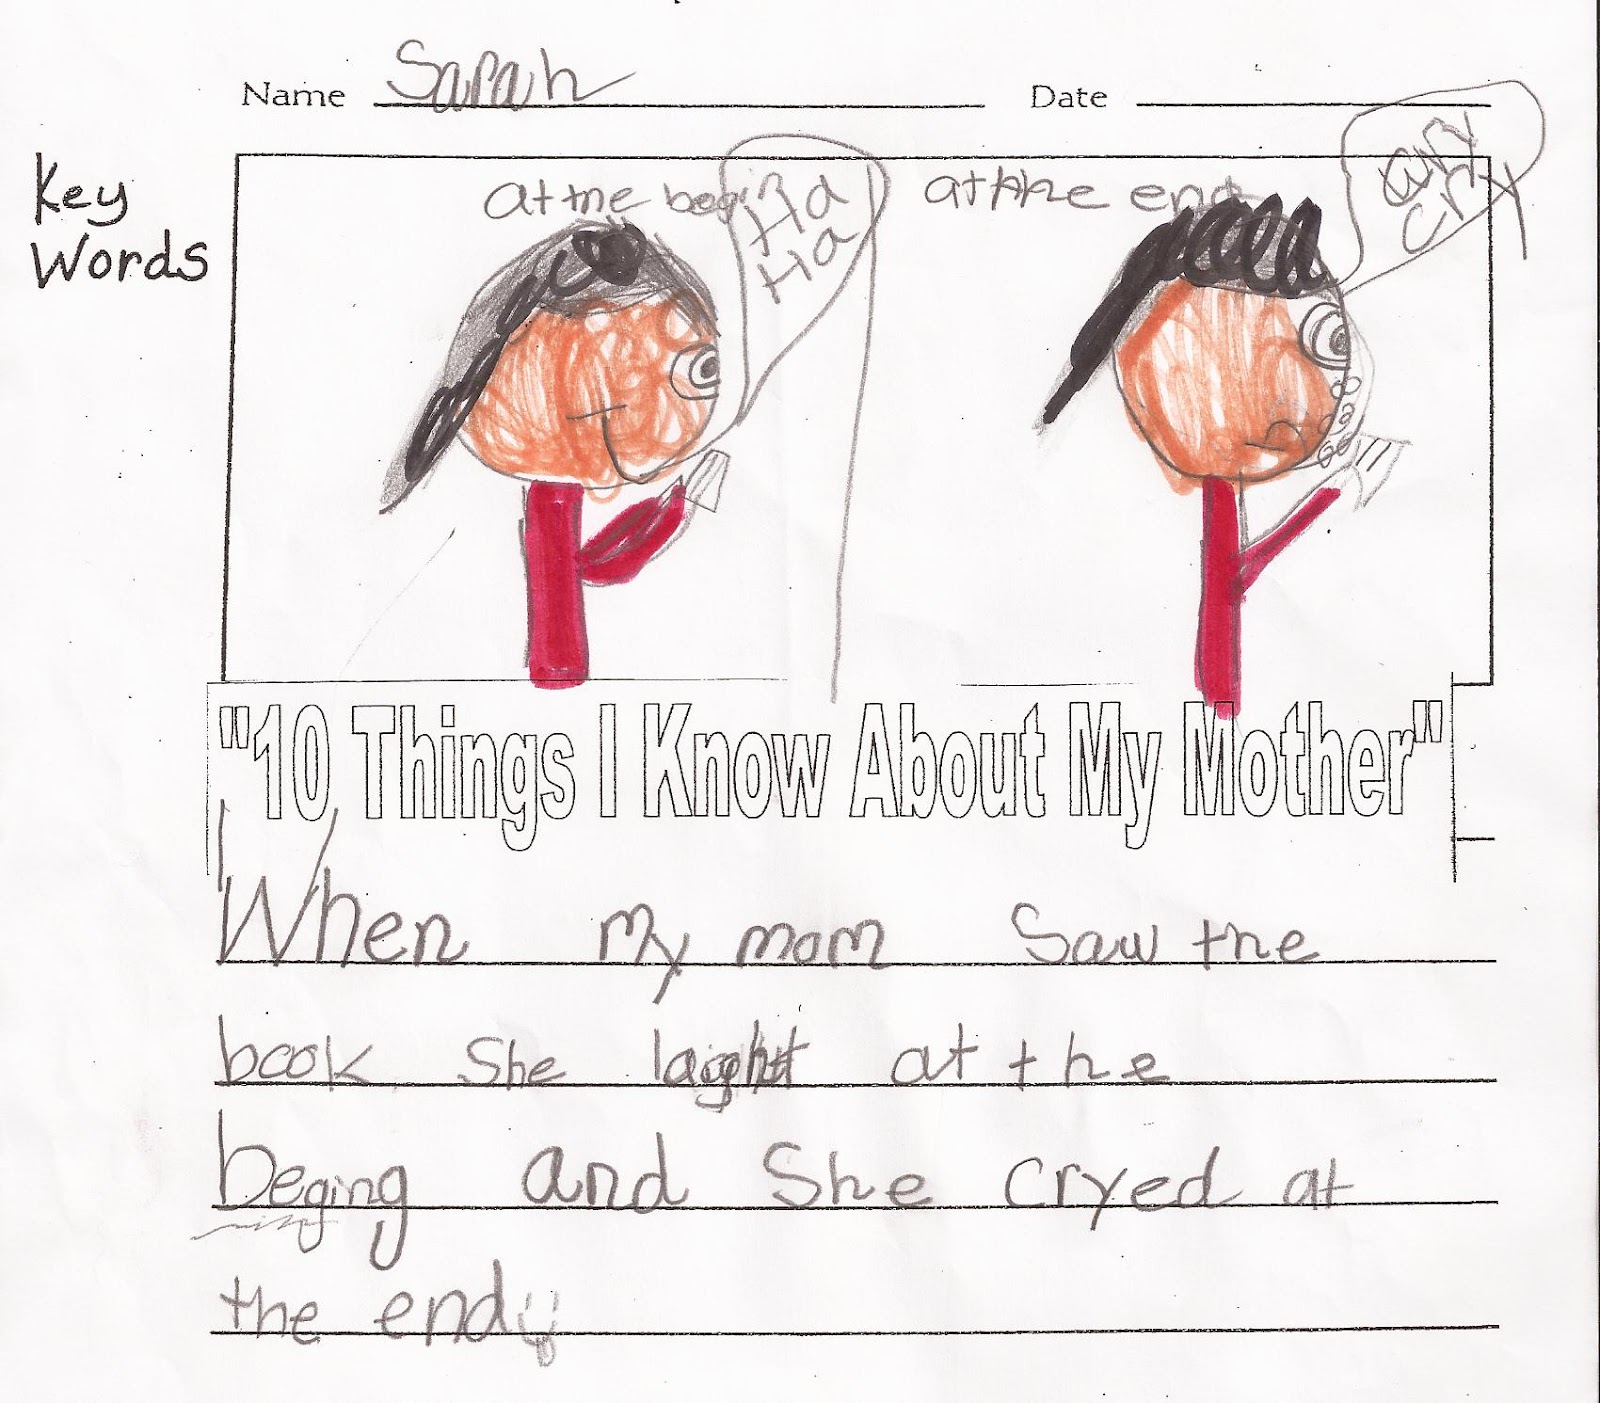 Name Sarah Date
Key
Words
at the begin
Ha
Ha
at the end
cry
cry
"10 Things I Know About My Mother"
When my mom Saw the
book She laight at the
beging and She cryed at
the end